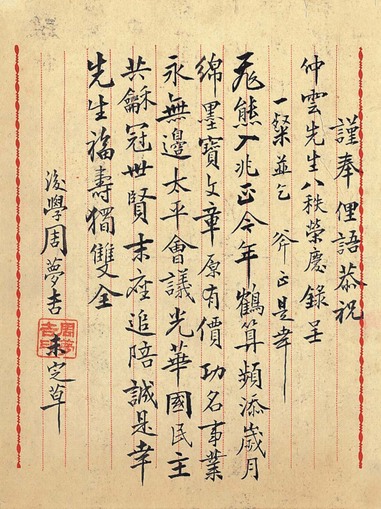 謹奉俚語恭祝
仲雲先生八秩榮慶錄呈
一粲並乞 斧正是幸
飛熊入兆正今年鶴算頻添歲月
綿墨寶文章原有價功名事業
永無邊太平會議光華國民主
共龢冠世賢末座追陪誠是幸
先生福壽獨雙全
後學周夢吉未定草